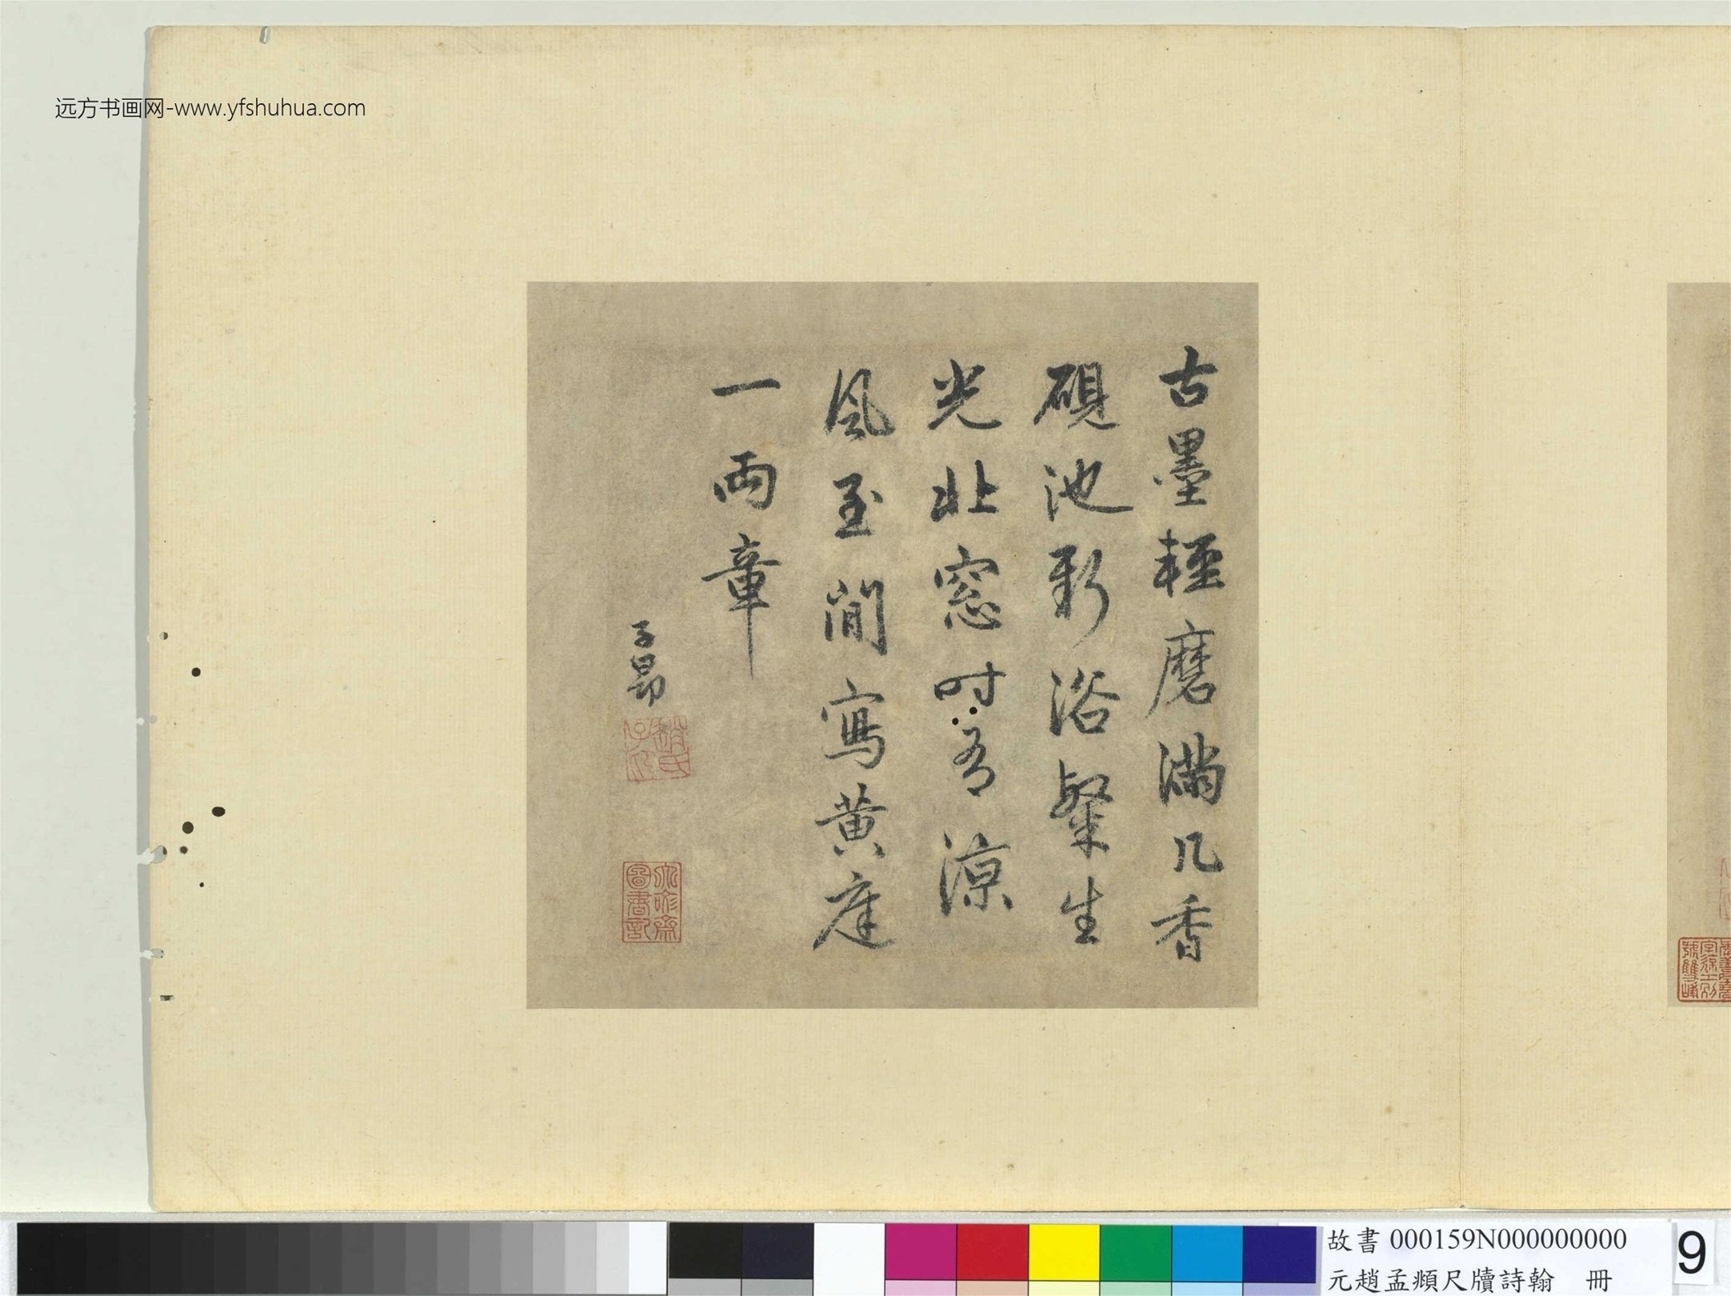 远方书画网-www.yfshuhua.com
古墨輕磨滿几香
硯池新浴粲生
光北窓時有涼
風至閒寫黄庭
一兩章
子昂
趙氏子昂
圖書記
故書 000159N000000000
元趙孟頫尺牘詩翰 冊
9